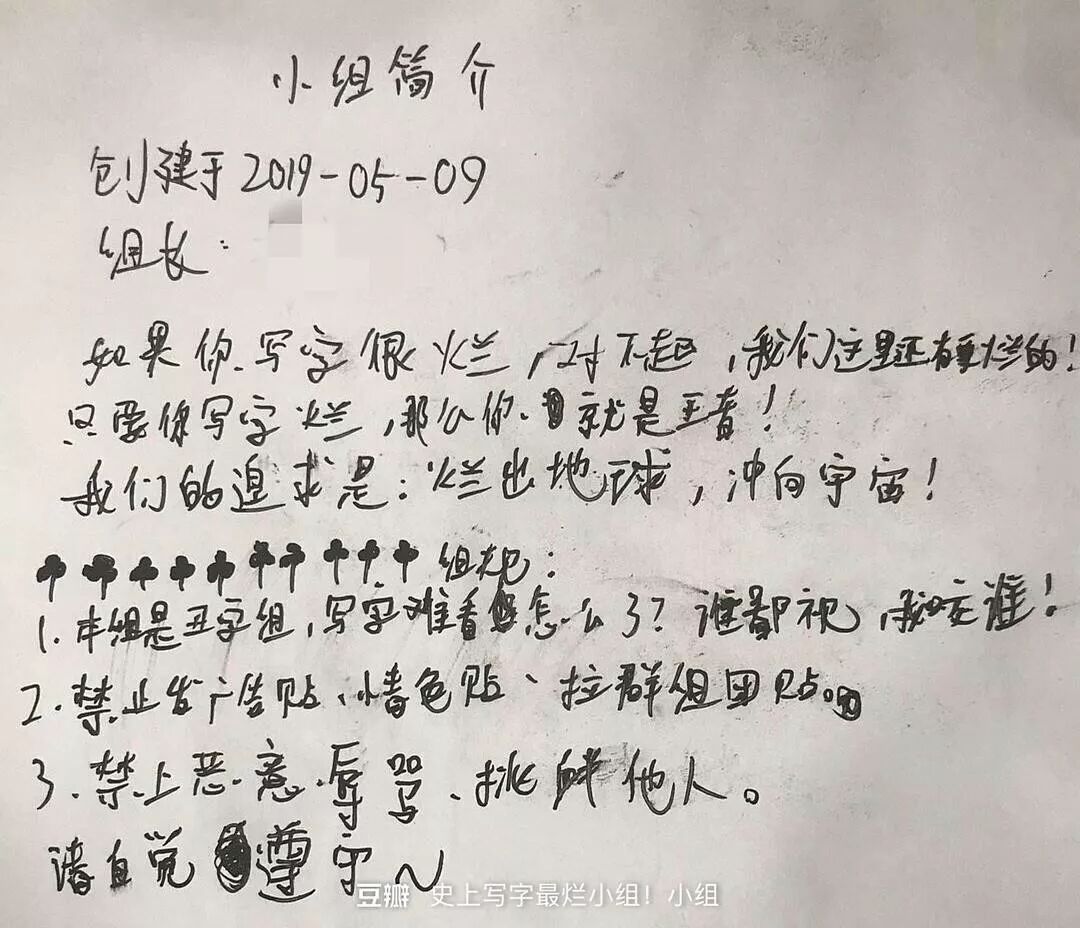 小组简介
创建于2019-05-09
组长:
如果你写字很烂,对不起,我们这里还有更烂的!
只要你写字烂,那么你就是王者!
我们的追求是:烂出地球,冲向宇宙!
组规:
1.本组是丑字组,写字难看怎么了?谁鄙视,我咬谁!
2.禁止发广告贴、情色贴、拉群组团贴。
3.禁止恶意辱骂、挑衅他人。
请自觉遵守~
豆瓣 史上写字最烂小组!小组